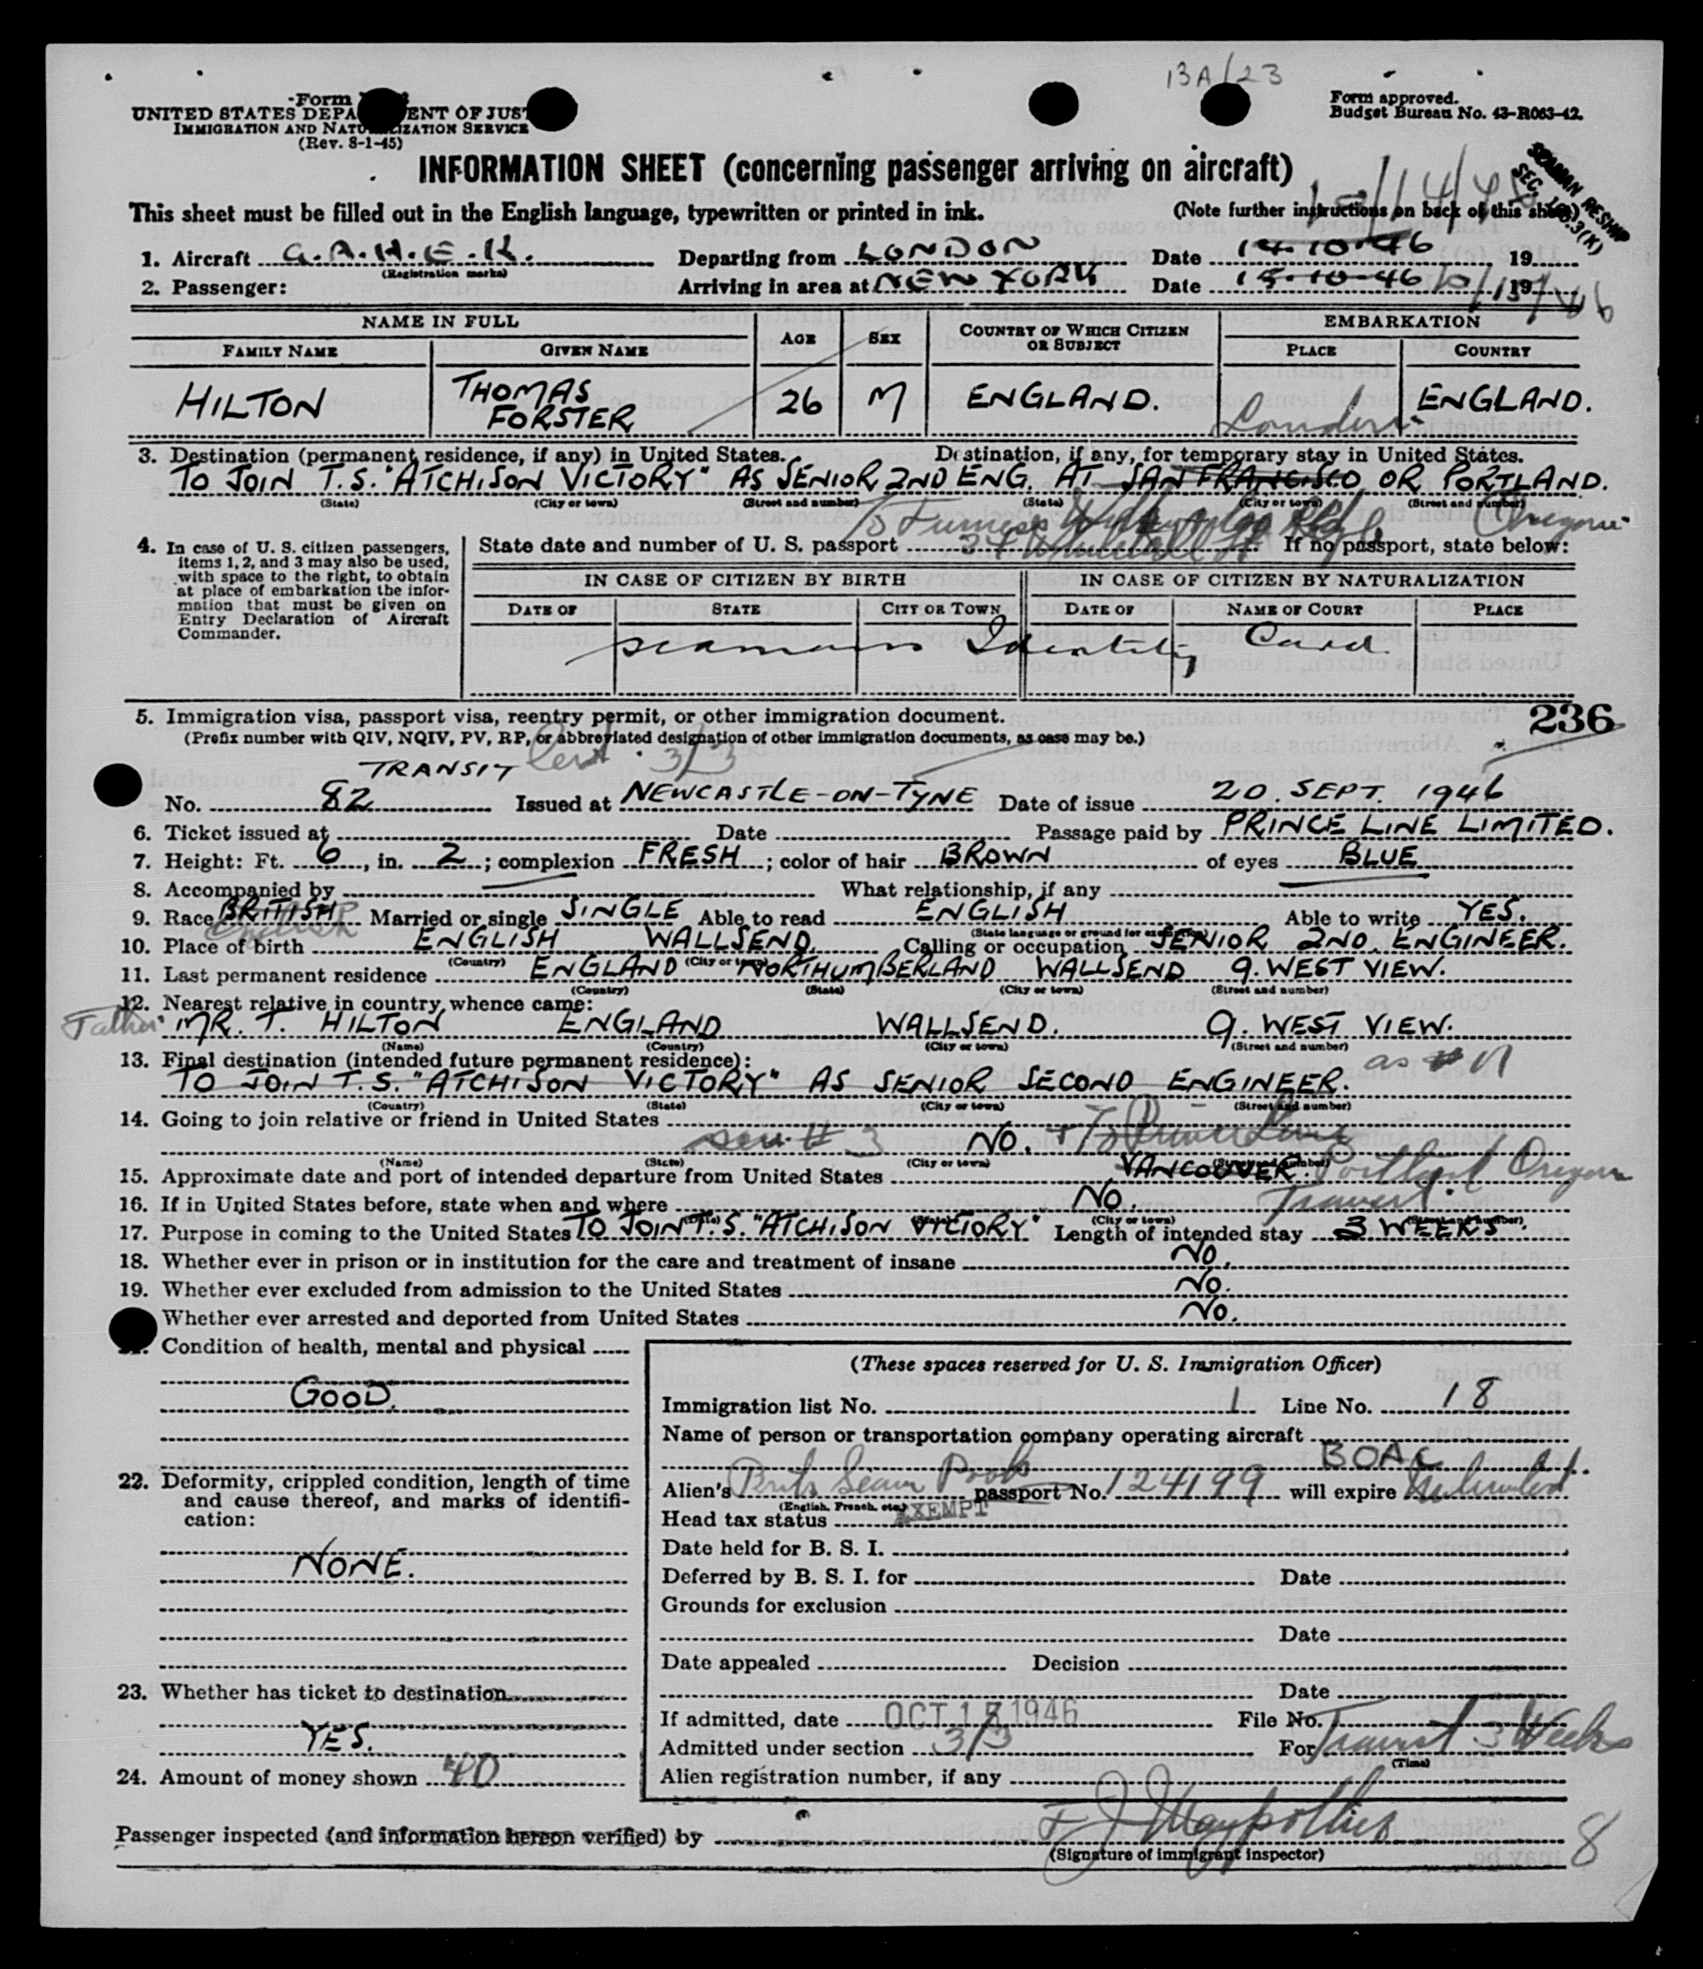 13A/23
Form
UNITED STATES DEPA ENT OF JUST
IMMIGRATION AND NATURALIZATION SERVICE
(Rev. 8-1-45)
Form approved.
Budget Bureau No. 43-R063-42.
INFORMATION SHEET (concerning passenger arriving on aircraft)
SEAMAN RESHIP
SEC.
This sheet must be filled out in the English language, typewritten or printed in ink.
(Note further instructions on back of this sheet)
1. Aircraft G.A.H.E.K. Departing from LONDON Date 14-10-46 19
(Registration marks)
2. Passenger: Arriving in area at NEW YORK Date 15-10-46 19
NAME IN FULL AGE SEX COUNTRY OF WHICH CITIZEN OR SUBJECT EMBARKATION
FAMILY NAME GIVEN NAME PLACE COUNTRY
HILTON THOMAS FORSTER 26 M ENGLAND. London ENGLAND.
3. Destination (permanent residence, if any) in United States. Destination, if any, for temporary stay in United States.
TO JOIN T.S. "ATCHISON VICTORY" AS SENIOR 2ND ENG. AT SAN FRANCISCO OR PORTLAND.
(State) (City or town) (Street and number) (State) (City or town) (Street and number)
Oregon
4. In case of U. S. citizen passengers, items 1, 2, and 3 may also be used, with space to the right, to obtain at place of embarkation the information that must be given on Entry Declaration of Aircraft Commander.
State date and number of U. S. passport If no passport, state below:
IN CASE OF CITIZEN BY BIRTH IN CASE OF CITIZEN BY NATURALIZATION
DATE OF STATE CITY OR TOWN DATE OF NAME OF COURT PLACE
Seamans Identity Card
5. Immigration visa, passport visa, reentry permit, or other immigration document. 236
(Prefix number with QIV, NQIV, PV, RP, or abbreviated designation of other immigration documents, as case may be.)
TRANSIT Cert. 3/3
No. 82 Issued at NEWCASTLE-ON-TYNE Date of issue 20. SEPT. 1946
6. Ticket issued at Date Passage paid by PRINCE LINE LIMITED.
7. Height: Ft. 6, in. 2; complexion FRESH; color of hair BROWN of eyes BLUE
8. Accompanied by What relationship, if any
9. Race BRITISH Married or single SINGLE Able to read ENGLISH Able to write YES.
English
(State language or ground for exemption)
10. Place of birth ENGLISH WALLSEND. Calling or occupation SENIOR 2ND. ENGINEER.
(Country) (City or town)
11. Last permanent residence ENGLAND NORTHUMBERLAND WALLSEND 9. WEST VIEW.
(Country) (State) (City or town) (Street and number)
12. Nearest relative in country whence came:
Father MR. T. HILTON ENGLAND WALLSEND. 9. WEST VIEW.
(Name) (Country) (City or town) (Street and number)
13. Final destination (intended future permanent residence): as # 11
TO JOIN T.S. "ATCHISON VICTORY" AS SENIOR SECOND ENGINEER.
(Country) (State) (City or town) (Street and number)
14. Going to join relative or friend in United States
see # 3 NO. + To Prince Line
(Name) (State) (City or town) (Street and number)
15. Approximate date and port of intended departure from United States VANCOUVER. Portland Oregon
16. If in United States before, state when and where NO. Transit.
(Date) (State) (City or town) (Street and number)
17. Purpose in coming to the United States TO JOIN T.S. "ATCHISON VICTORY" Length of intended stay 3 WEEKS.
18. Whether ever in prison or in institution for the care and treatment of insane NO.
19. Whether ever excluded from admission to the United States NO.
Whether ever arrested and deported from United States NO.
Condition of health, mental and physical
GOOD.
22. Deformity, crippled condition, length of time and cause thereof, and marks of identification:
NONE.
23. Whether has ticket to destination
YES.
24. Amount of money shown 40
(These spaces reserved for U. S. Immigration Officer)
Immigration list No. 1 Line No. 18
Name of person or transportation company operating aircraft
BOAC
Alien's Brit. Seam Book passport No. 124199 will expire
(English, French, etc.)
Head tax status EXEMPT
Date held for B. S. I.
Deferred by B. S. I. for Date
Grounds for exclusion
Date
Date appealed Decision
Date
If admitted, date OCT 15 1946 File No.
Admitted under section 3/3 For Transit 3 Weeks
(Time)
Alien registration number, if any
Passenger inspected (and information hereon verified) by
(Signature of immigrant inspector)
8